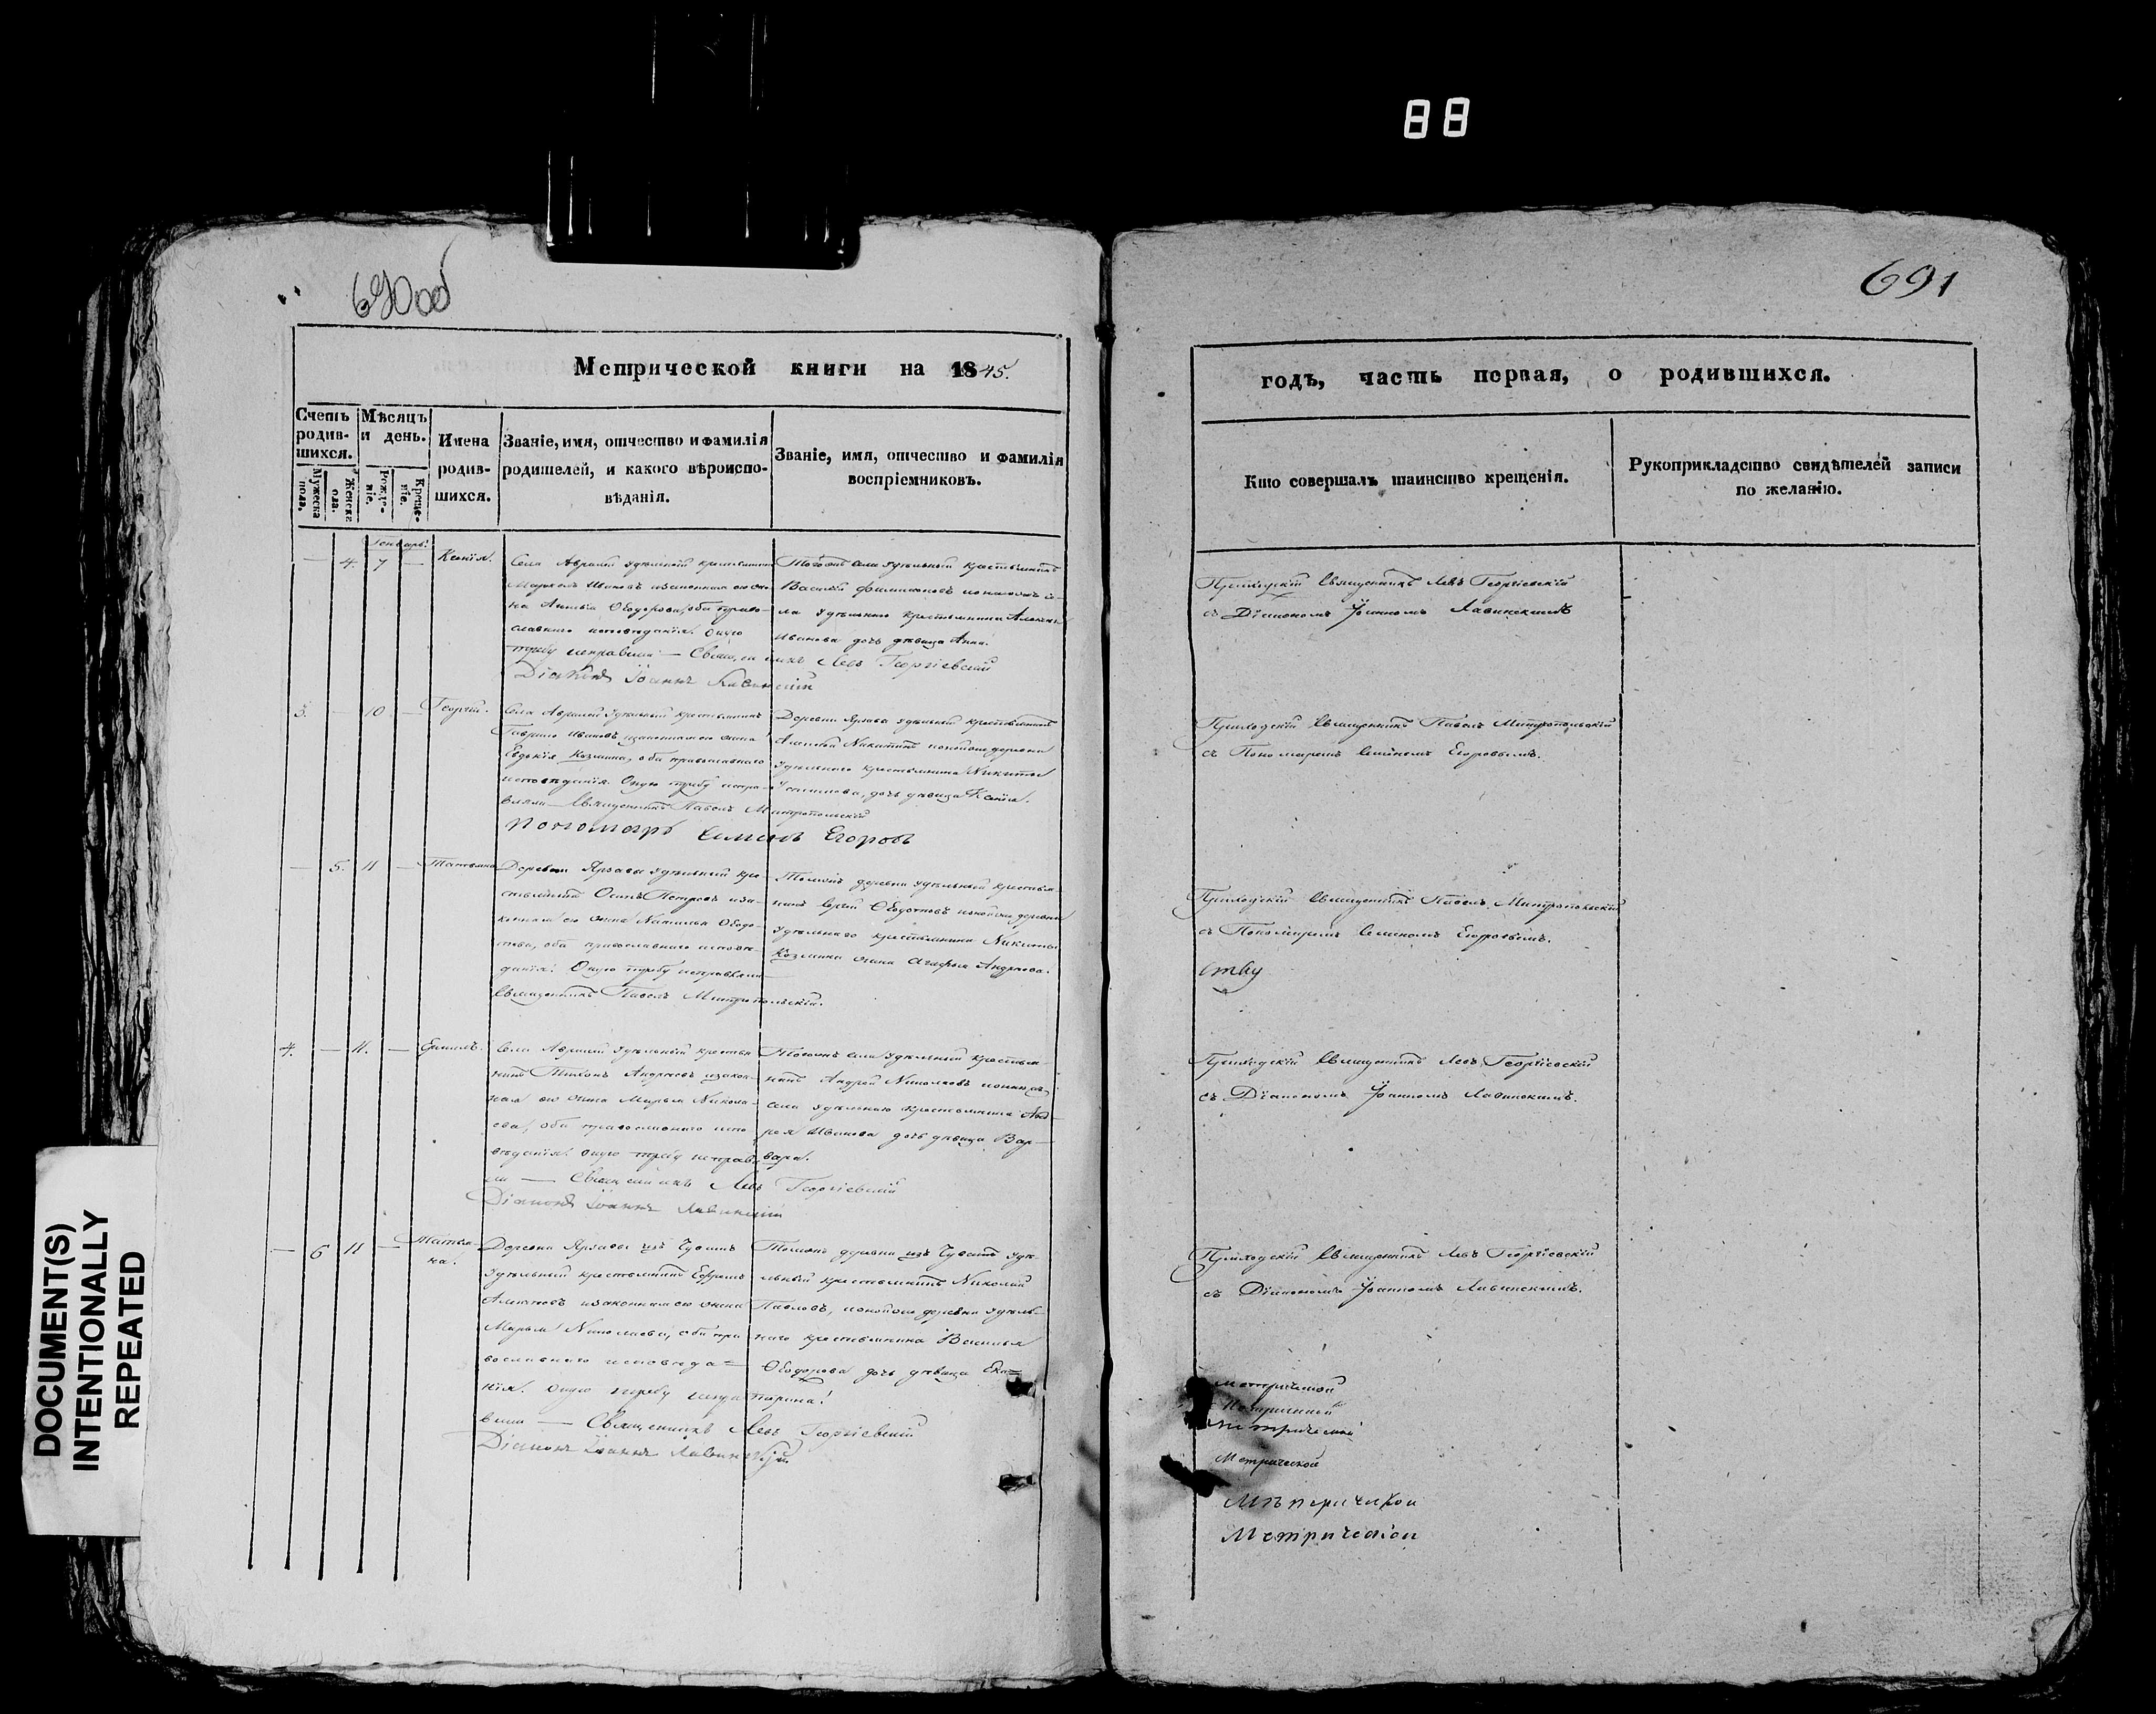 88
690об
691
Метрической книги на 1845.
годъ, часть первая, о родившихся.
Счетъ родив-шихся.
Мѣсяцъ и день.
Имена родив-шихся.
Званіе, имя, отчество и фамилія родителей, и какого вѣроиспо-вѣданія.
Званіе, имя, отчество и фамилія воспріемниковъ.
Кто совершалъ таинство крещенія.
Рукоприкладство свидѣтелей записи по желанію.
Мужеска пола.
Женска пола.
Рожде-ніе.
Креще-ніе.
Генварь.
— 4. 7 — Ксенія.
Села Авралей удѣльный крестьянинъ
Ивановъ изаконная его же-
на Ѳеодорова, оба право-
славнаго исповѣданія. Оную
требу исправляли — Священникъ Левъ Георгіевскій
Діаконъ Іоаннъ Лавинскій
Тогожъ села удѣльный крестьянинъ
Василій Филимоновъ
ла удѣльнаго крестьянина
Иванова дочь дѣвица Анна.
Приходскій Священникъ Левъ Георгіевскій
съ Діакономъ Іоанномъ Лавинскимъ
3. — 10 — Георгій.
Села Авралей удѣльный крестьянинъ
Гаврило Ивановъ изаконная его жена
Евдокія Козмина, оба православнаго
исповѣданія. Оную требу испра-
вляли — Священникъ Павелъ Митропольскій
Пономарь Семенъ Егоровъ
Деревни удѣльный крестьянинъ
Алексѣй Никитинъ итойже деревни
удѣльнаго крестьянина Никиты
дочь дѣвица Ксенія.
Приходскій Священникъ Павелъ Митропольскій
съ Пономаремъ Семеномъ Егоровымъ.
— 5. 11 — Татьяна
Деревни удѣльный кре-
стьянинъ Осипъ Петровъ иза-
конная его жена Наталья Ѳедо-
това, оба православнаго исповѣ-
данія. Оную требу исправляли
Священникъ Павелъ Митропольскій.
Тойжъ деревни удѣльный крестья-
нинъ Сергій Ѳедотовъ итойже деревни
удѣльнаго крестьянина Никиты
Козмина жена Агафья Андреева.
Приходскій Священникъ Павелъ Митропольскій
съ Пономаремъ Семеномъ Егоровымъ.
4. — 11. —
Села Авралей удѣльный крестья-
нинъ Тихонъ Андреевъ изакон-
ная его жена Марья Никола-
ева, оба православнаго испо-
вѣданія. Оную требу исправля-
ли — Священникъ Левъ Георгіевскій
Діаконъ Іоаннъ Лавинскій
Тогожъ села удѣльный крестья-
нинъ Андрей Николаевъ
села удѣльнаго крестьянина Анд-
рея Иванова дочь дѣвица Вар-
вара.
Приходскій Священникъ Левъ Георгіевскій
съ Діакономъ Іоанномъ Лавинскимъ.
— 6 11 — Татья-
на.
Деревни изъ Чувашъ
удѣльный крестьянинъ Ефремъ
изаконная его жена
Марья Николаева, оба пра-
вославнаго исповѣда-
нія. Оную требу испра-
вили — Священникъ Левъ Георгіевскій
Діаконъ Іоаннъ Лавинскій
Тойжъ деревни изъ Чувашъ удѣ-
льный крестьянинъ Николай
Павловъ, итойже деревни удѣль-
наго крестьянина Василья
Ѳеодорова дочь дѣвица Ека-
терина.
Приходскій Священникъ Левъ Георгіевскій
съ Діакономъ Іоанномъ Лавинскимъ.
Метрической
Метрической
Метрической
DOCUMENT(S)
INTENTIONALLY
REPEATED